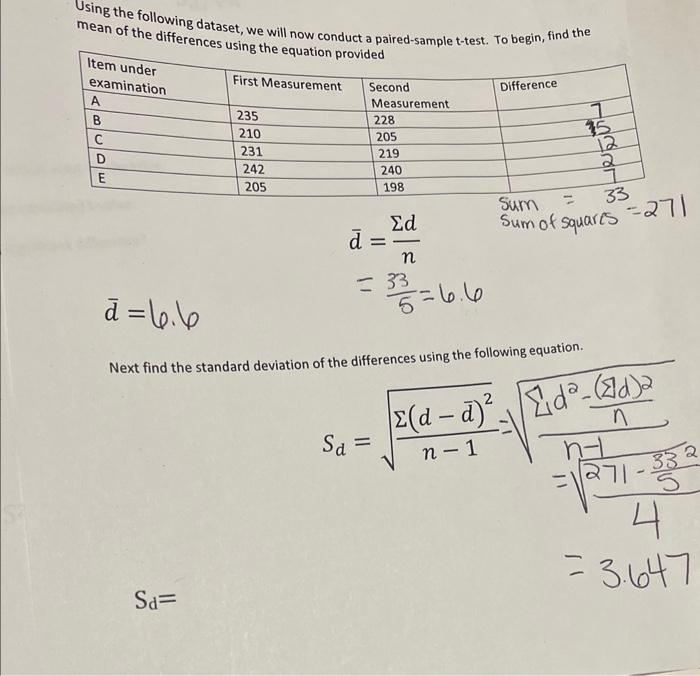 Using the following dataset, we will now conduct a paired-sample t-test. To begin, find the
mean of the differences using the equation provided
Item under examination First Measurement Second Measurement Difference
A 235 228 7
B 210 205 5
C 231 219 12
D 242 240 2
E 205 198 7
Sum = 33
Sum of squares = 271
d̄ = Σd / n
= 33/5 = 6.6
d̄ = 6.6
Next find the standard deviation of the differences using the following equation.
S_d = √(Σ(d − d̄)² / (n − 1)) = √((Σd² - (Σd)²/n) / (n-1))
= √((271 - 33²/5) / 4)
= 3.647
Sd=